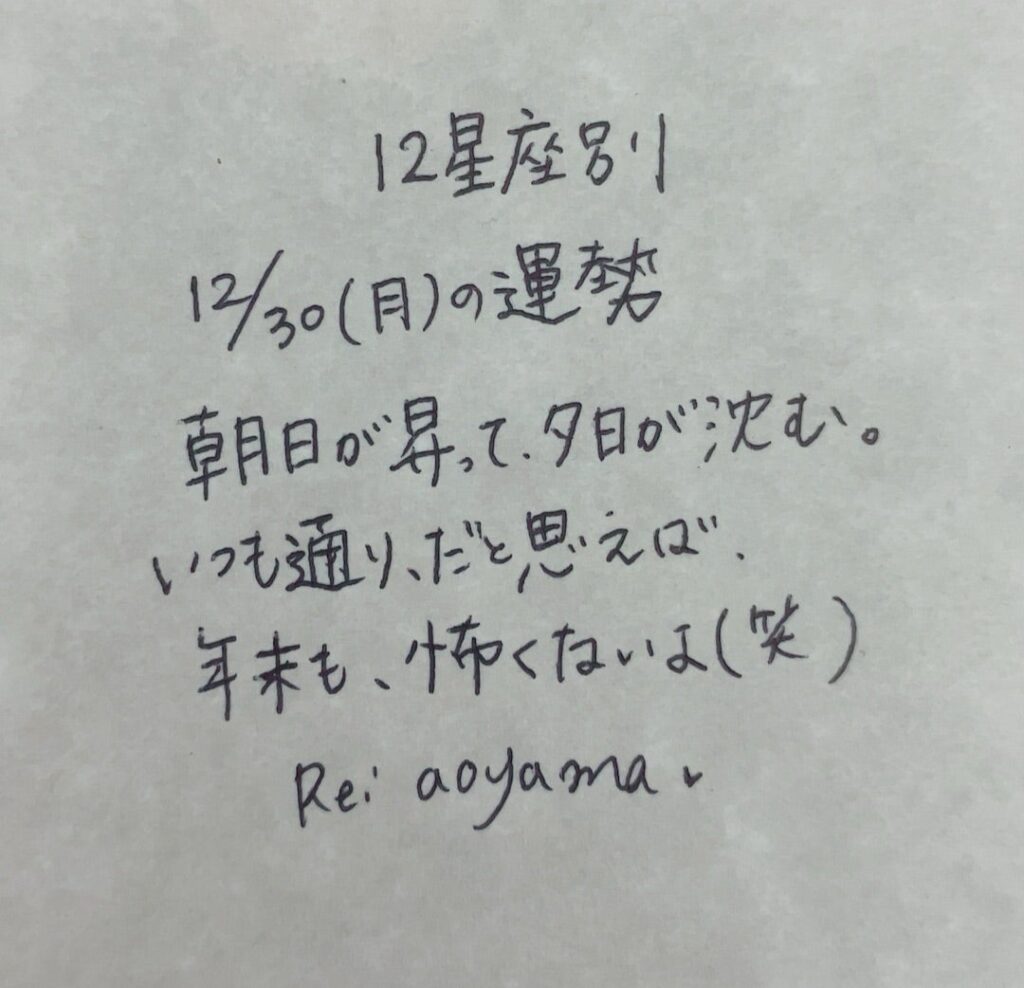 12星座別
12/30(月)の運勢
朝日が昇って、夕日が沈む。
いつも通り、だと思えば、
年末も、怖くないよ(笑)
Rei aoyama